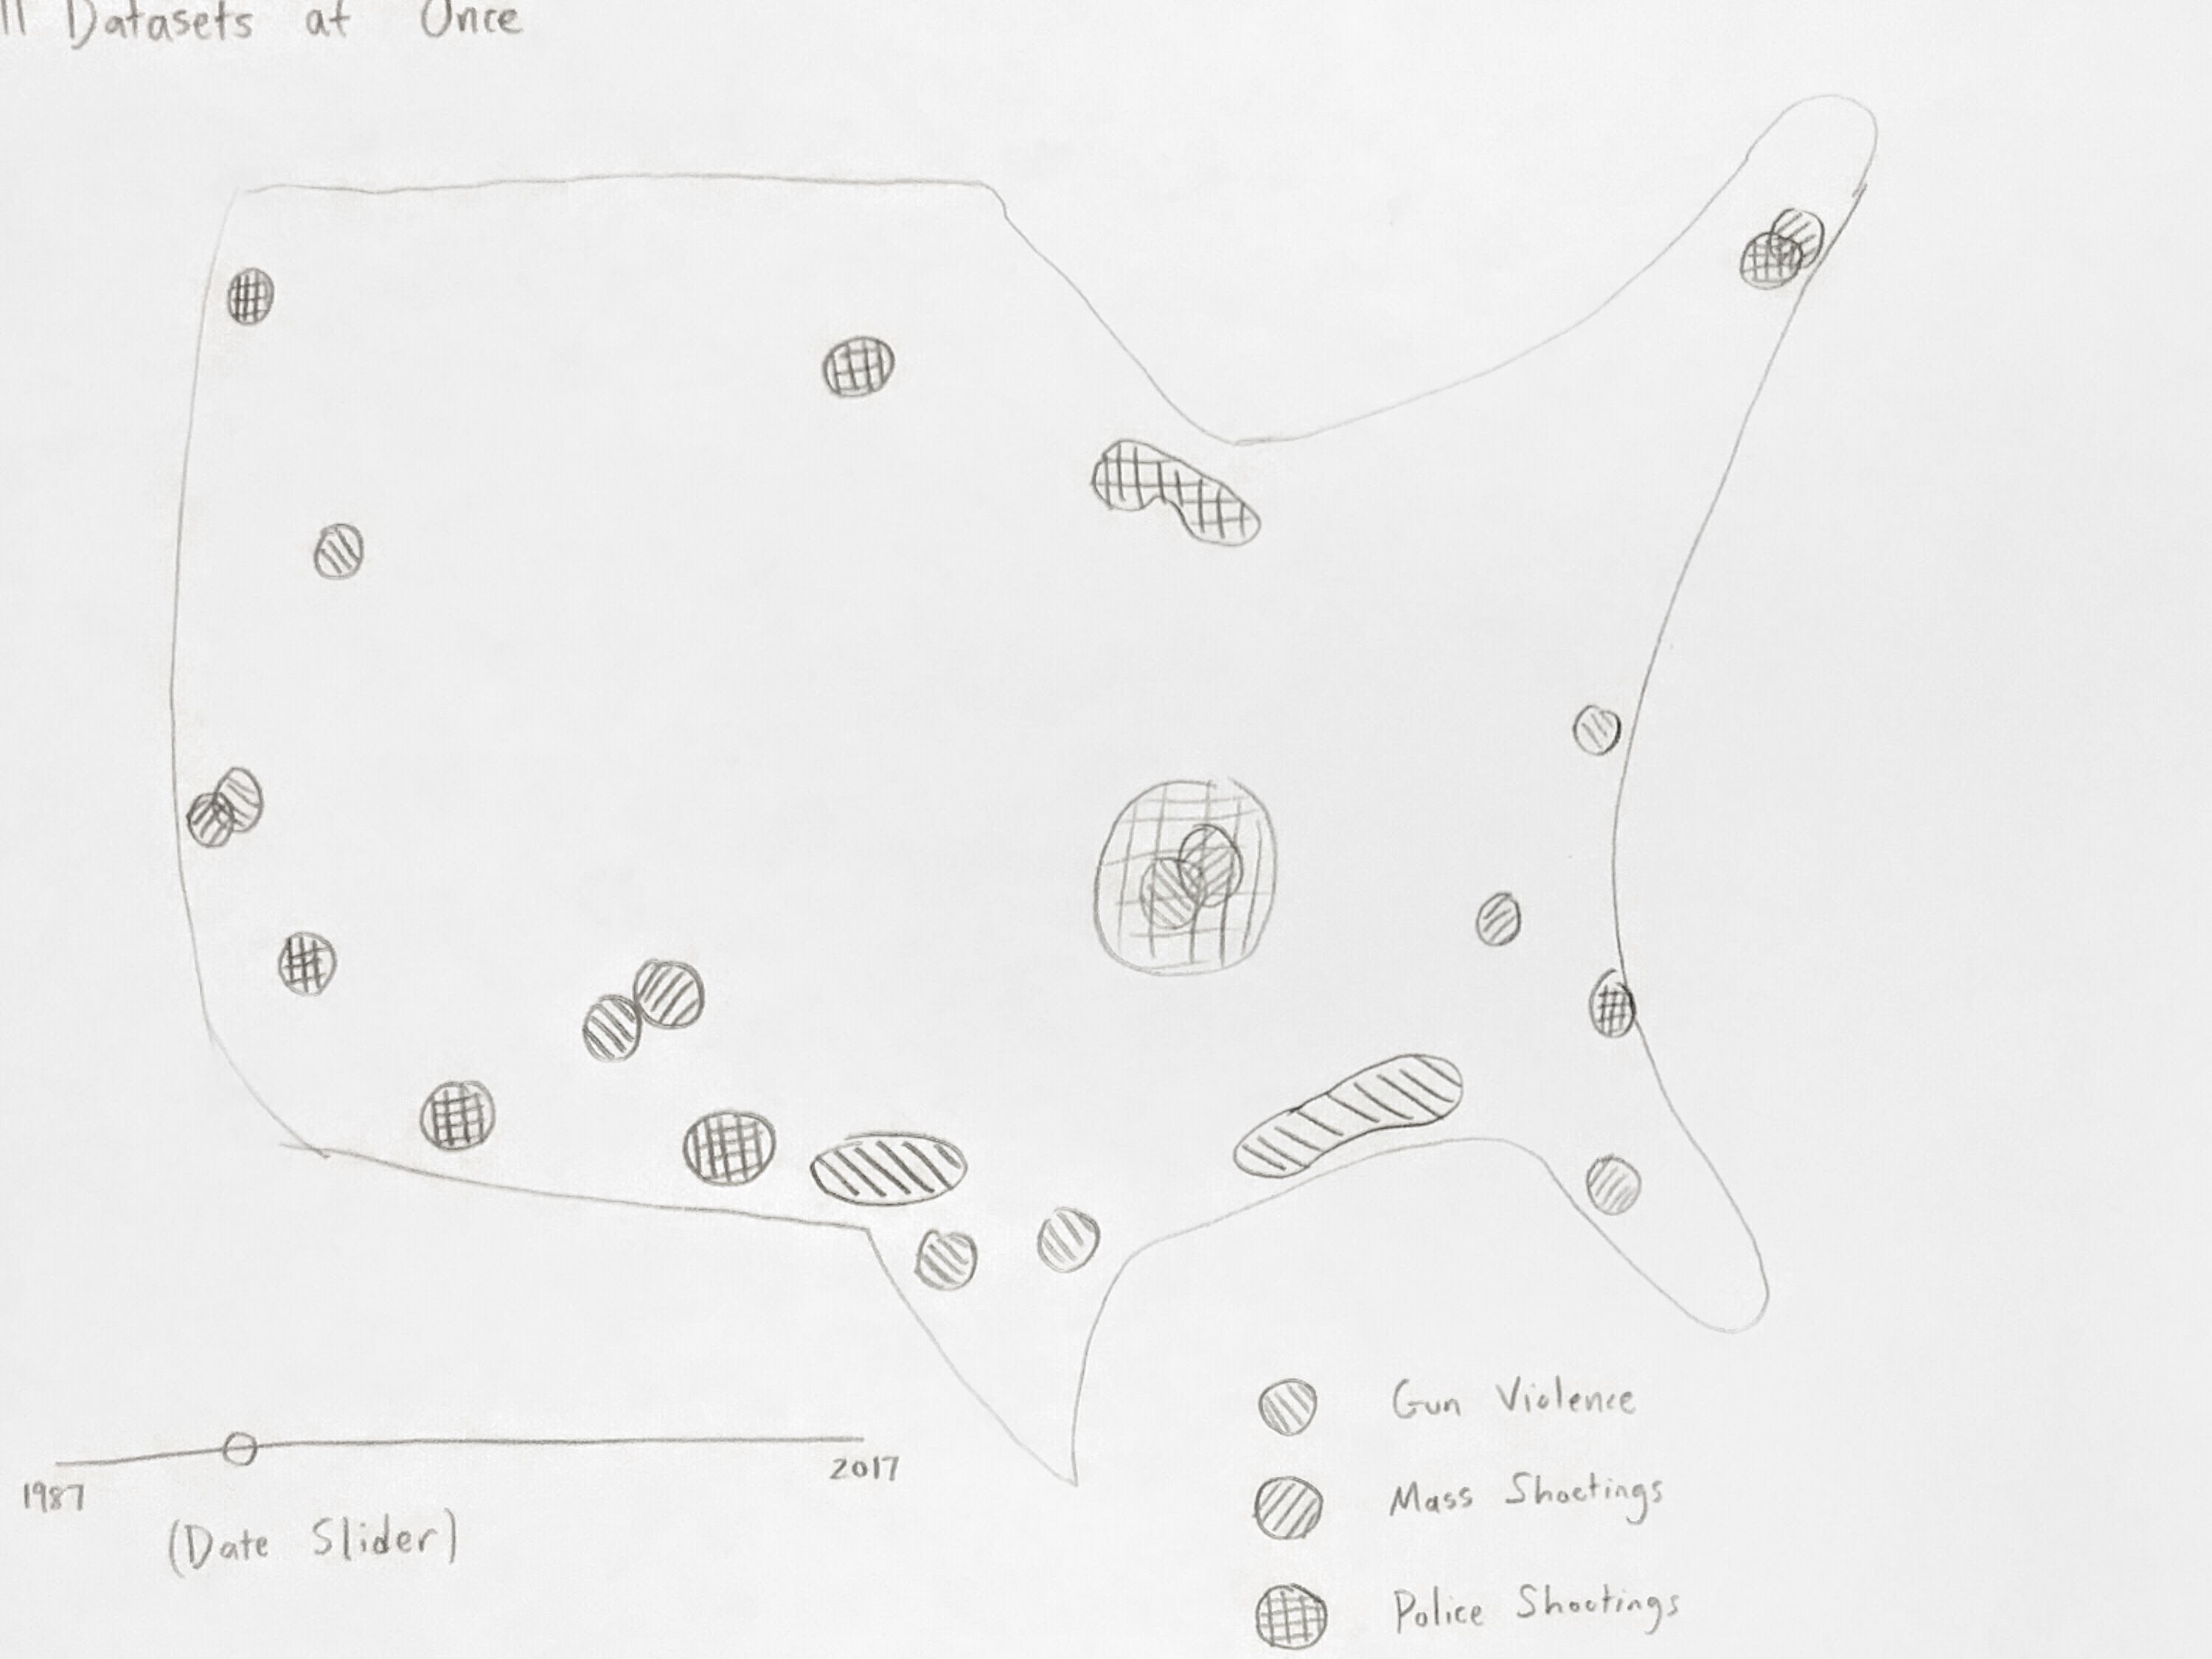 Datasets at Once
1987
2017
(Date Slider)
Gun Violence
Mass Shootings
Police Shootings